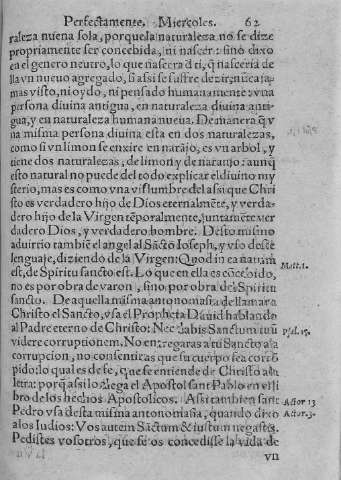 Perfectamente, Miercoles. 62
raleza nueua sola, porque la naturaleza no se dize
propriamente ser concebida, ni nascer: sino dixo
en el genero neutro, lo que nascera d ti, q̃ nasceria de
lla vn nueuo agregado, si assi se sufre dezir, nũca ja-
mas visto, ni oydo, ni pensado humanamente: vna
persona diuina antigua, en naturaleza diuina anti-
gua, y en naturaleza humana nueua. De manera q̃ v
na misma persona diuina esta en dos naturalezas,
como si vn limon se enxire en narãjo, es vn arbol, y
tiene dos naturalezas, de limon y de naranjo: aunq̃
esto natural no puede del todo explicar el diuino my
sterio, mas es como vna vislumbre del assi que Chri
sto es verdadero hijo de Dios eternalmẽte, y verda-
dero hijo de la Virgen tẽporalmente, juntamẽte ver
dadero Dios, y verdadero hombre. Desto mismo
aduirtio tambiẽ el angel al Sãcto Ioseph, y vso deste
lenguaje, diziendo de la Virgen: Quod in ea natum
est, de Spiritu sancto est. Lo que en ella es cõcebido,
no es por obra de varon, sino por obra del Spiritu
sancto. De aquella misma antonomasia de llamar a
Christo el Sancto, vsa el Propheta Dauid hablando
al Padre eterno de Christo: Nec dabis Sanctum tuũ
videre corruptionem. No entregaras a tu Sancto a la
corrupcion, no consentiras que su cuerpo sea corrõ
pido: lo qual es de fe, que se entiende de Christo a la
letra: porq̃ assi lo alega el Apostol sant Pablo en el li
bro de los hechos Apostolicos. Assi tambien sant
Pedro vsa desta misma antonomasia, quando dixo
a los Iudios: Vos autem Sãctum & iustum negastis.
Pedistes vosotros, que se os concediesse la vida de
vn
Matt. 1.
Psal. 15.
Actor 13
Actor. 3.